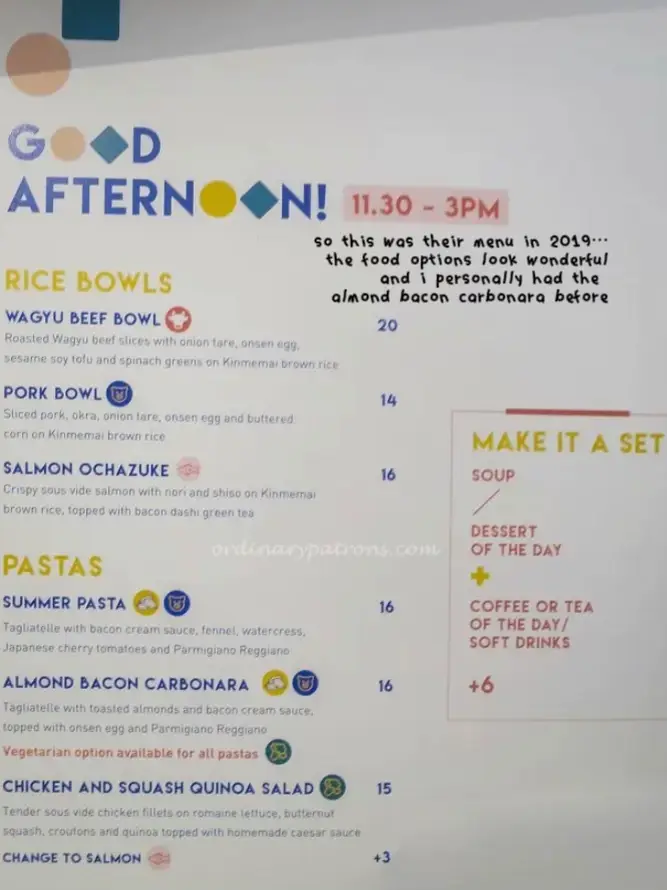 GOOD
AFTERNOON! 11.30 - 3PM
so this was their menu in 2019...
the food options look wonderful
and i personally had the
almond bacon carbonara before
RICE BOWLS
WAGYU BEEF BOWL 20
Roasted Wagyu beef slices with onion tare, onsen egg,
sesame soy tofu and spinach greens on Kinmemai brown rice
PORK BOWL 14
Sliced pork, okra, onion tare, onsen egg and buttered
corn on Kinmemai brown rice
SALMON OCHAZUKE 16
Crispy sous vide salmon with nori and shiso on Kinmemai
brown rice, topped with bacon dashi green tea
ordinarypatrons.com
PASTAS
SUMMER PASTA 16
Tagliatelle with bacon cream sauce, fennel, watercress,
Japanese cherry tomatoes and Parmigiano Reggiano
ALMOND BACON CARBONARA 16
Tagliatelle with toasted almonds and bacon cream sauce,
topped with onsen egg and Parmigiano Reggiano
Vegetarian option available for all pastas
CHICKEN AND SQUASH QUINOA SALAD 15
Tender sous vide chicken fillets on romaine lettuce, butternut
squash, croutons and quinoa topped with homemade caesar sauce
CHANGE TO SALMON +3
MAKE IT A SET
SOUP
/
DESSERT
OF THE DAY
+
COFFEE OR TEA
OF THE DAY/
SOFT DRINKS
+6